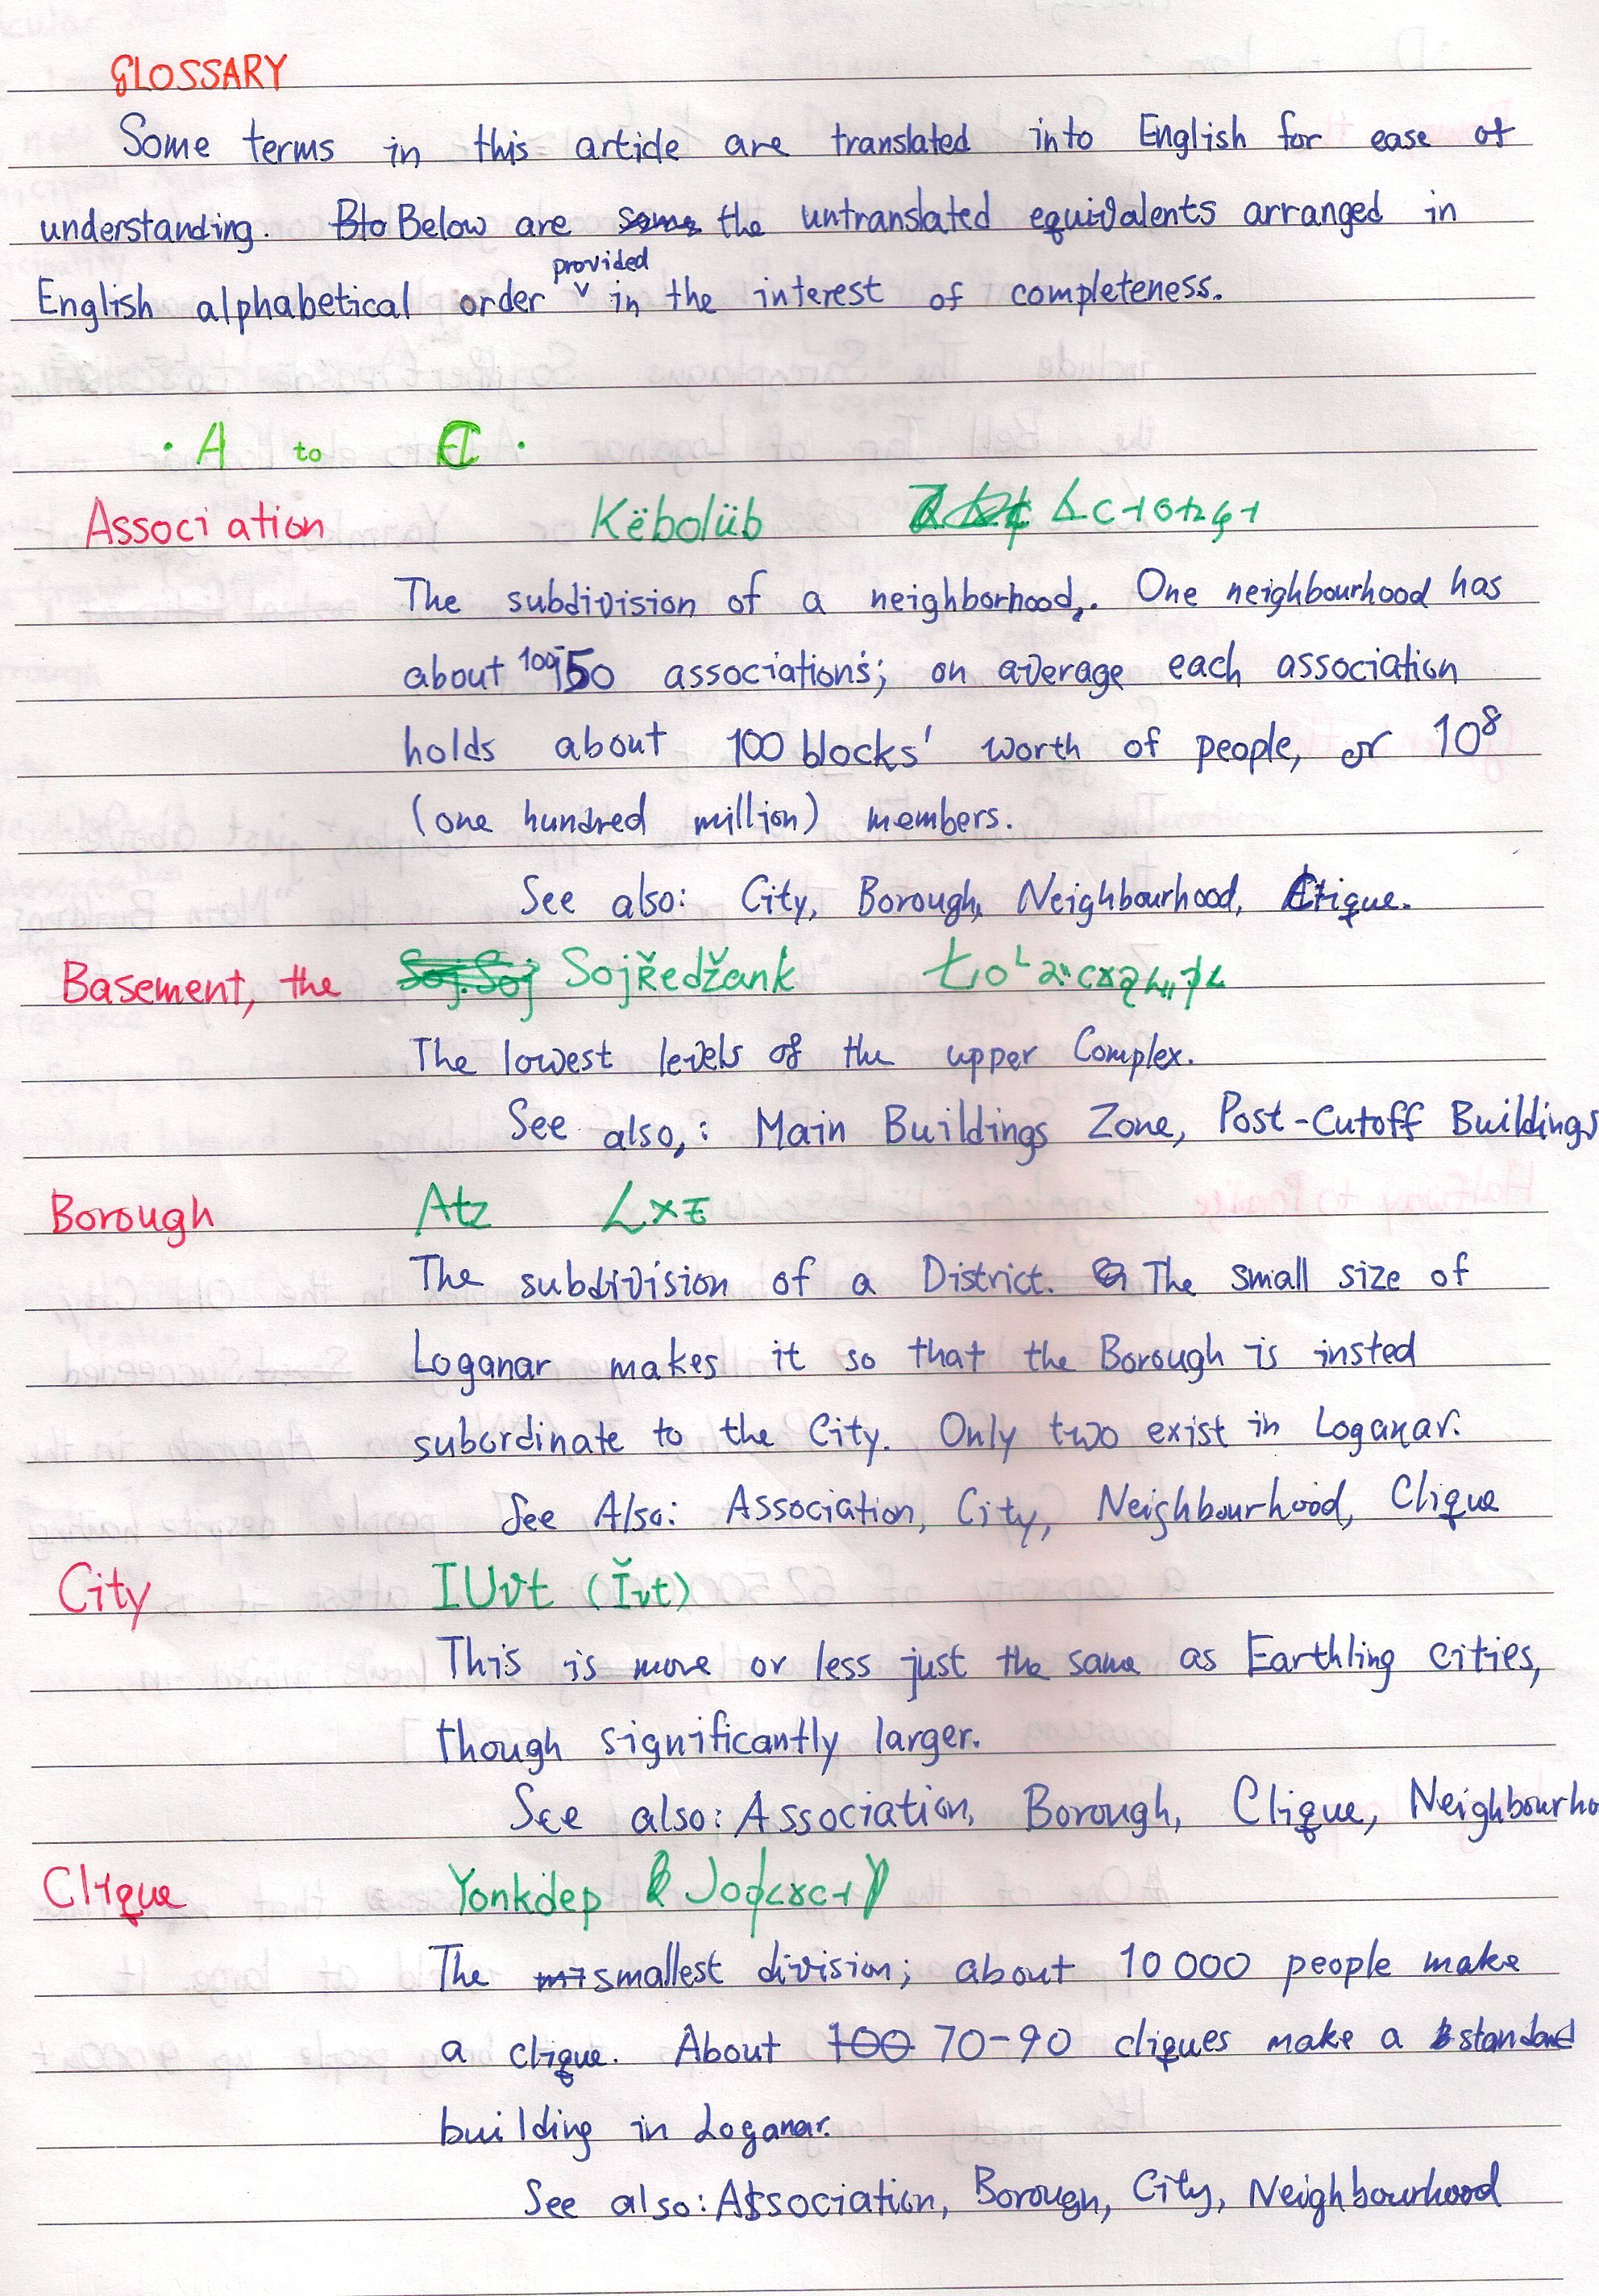 GLOSSARY
Some terms in this article are translated into English for ease of
understanding. Below are the untranslated equivalents arranged in
English alphabetical order provided in the interest of completeness.
· A to C ·
Association Këbolüb
The subdivision of a neighborhood. One neighbourhood has
about 100-150 associations; on average each association
holds about 100 blocks' worth of people, or 10⁸
(one hundred million) members.
See also: City, Borough, Neighbourhood, Clique.
Basement, the Sojředžank
The lowest levels of the upper Complex.
See also,: Main Buildings Zone, Post-Cutoff Buildings
Borough Atz
The subdivision of a District. The small size of
Loganar makes it so that the Borough is insted
subordinate to the City. Only two exist in Loganar.
See Also: Association, City, Neighbourhood, Clique
City IUvt (Ǐvt)
This is more or less just the same as Earthling cities,
though significantly larger.
See also: Association, Borough, Clique, Neighbourho
Clique Yonkdep
The smallest division; about 10 000 people make
a clique. About 70-90 cliques make a standard
building in Loganar.
See also: Association, Borough, City, Neighbourhood